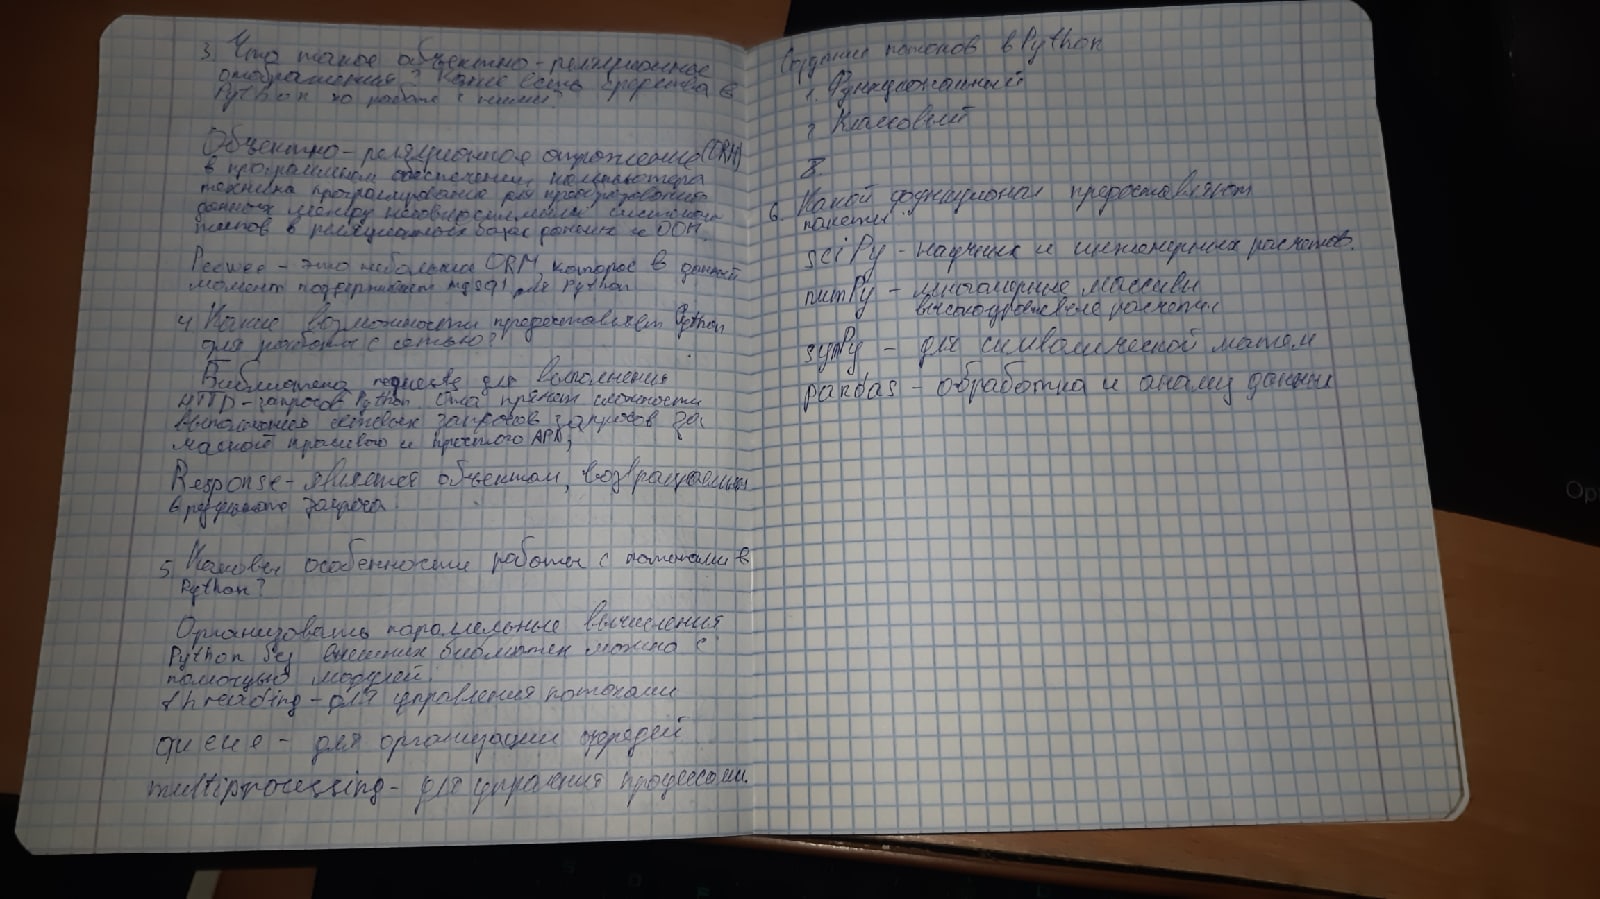 3. Что такое объектно-реляционное
отображение? Какие есть средства в
Python по работе с ними?
Объектно-реляционное отражение (ORM)
в программном обеспечении компьютера
техника программирования для преобразования
данных между несовместимыми системами
типов в реляционных базах данных и ООП.
Peewee - это небольшие ORM, которое в данный
момент поддерживает mysql для Python
4. Какие возможности предоставляет Python
для работы с сетью?
Библиотека для выполнения
HTTP-запросов Python. Она прячет сложности
выполнения сетевых запросов запросов за
маской красивого и простого API,
Response - является объектом, возвращаемым
в результате запроса.
5. Каковы особенности работы с потоками в
Python?
Организовать параллельные вычисления
Python без внешних библиотек можно с
помощью модулей:
threading - для управления потоками
queue - для организации очередей
multiprocessing - для управления процессами.
Создание потоков в Python
1. Функциональный
2 Классовый
8.
6. Какой предоставляют
пакеты
sciPy - научных и инженерных расчетов.
numPy - многомерные массивы
высокоуровневые расчеты
symPy - для символической матем
pandas - обработка и анализ данных